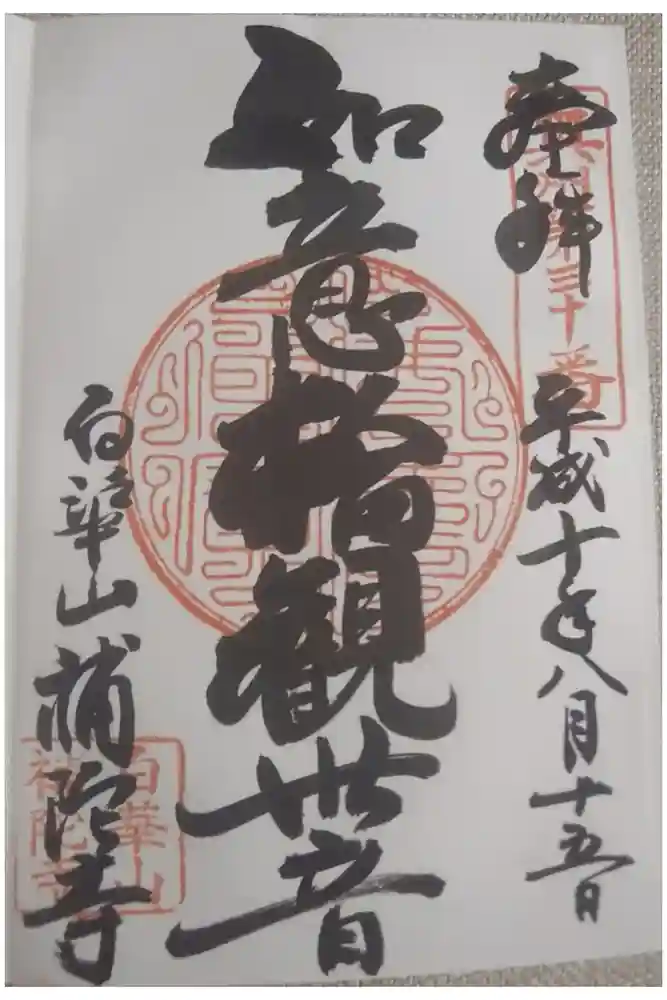 奉拝
奥州第三十番
平成十年八月十五日
如意輪觀世音
白華山
補陀寺
白華山
補陀寺